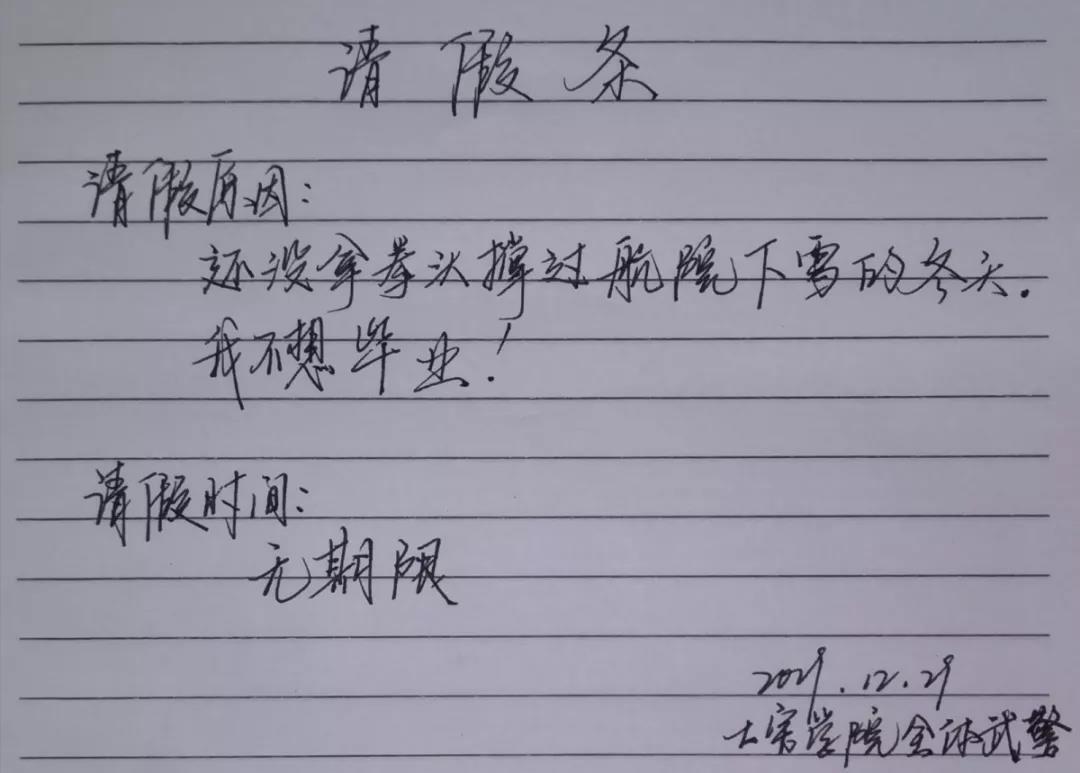 请假条
请假原因：
还没拿拳头撑过航院下雪的冬天．
我不想毕业！
请假时间：
无期限
2021.12.29
士官学院全体武警